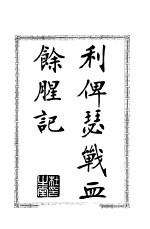 利俾瑟戰血
餘腥記